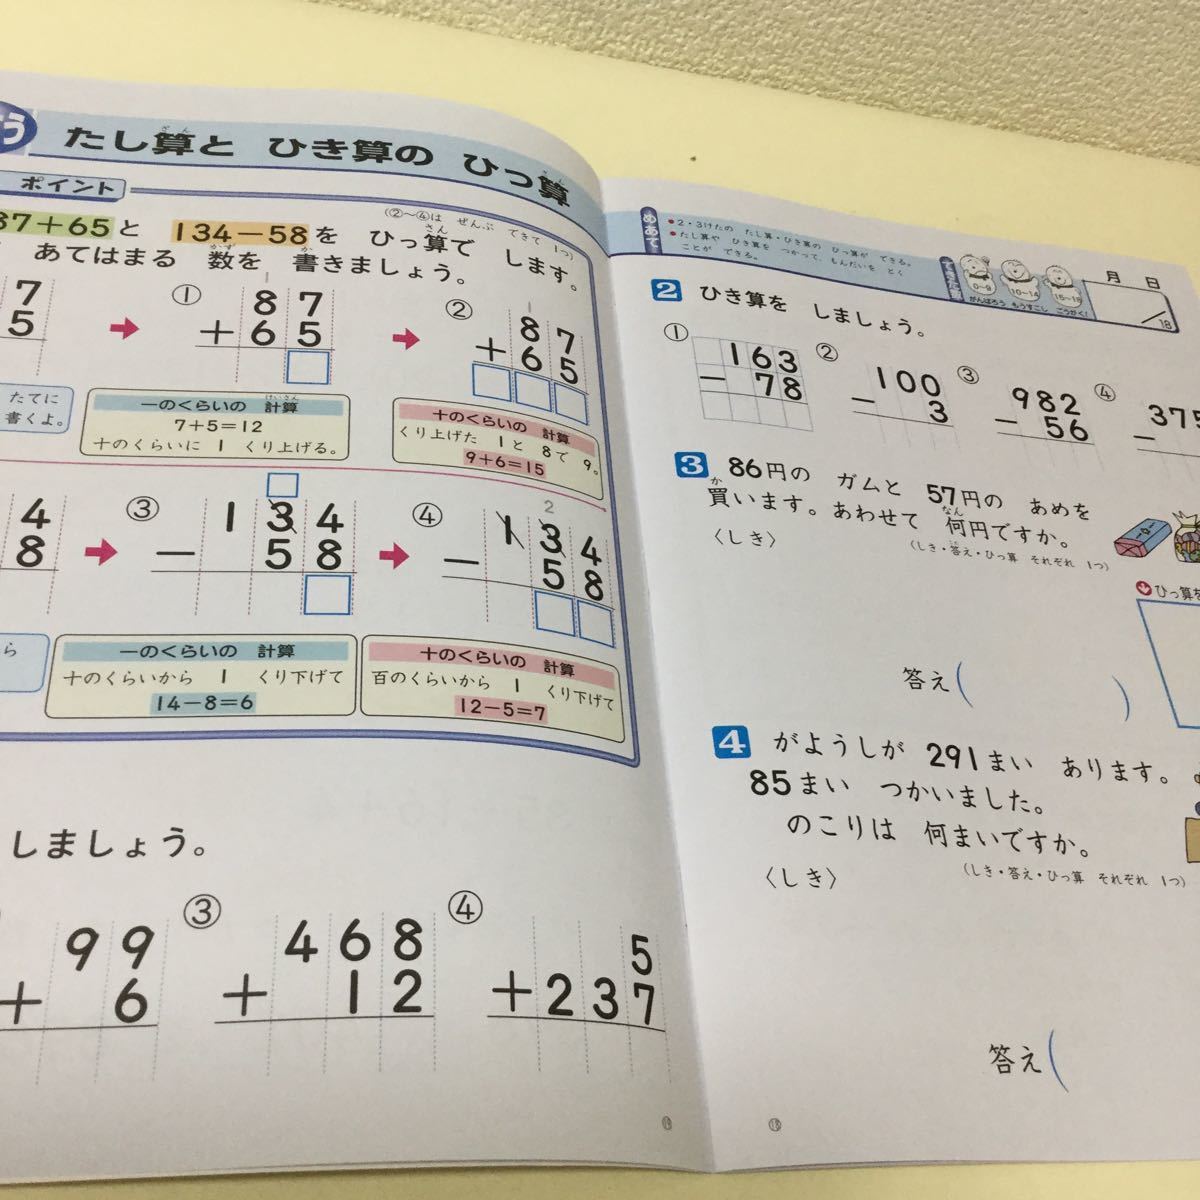 う たし算と ひき算の ひっ算
ざん
ざん
ポイント
(②〜④は ぜんぶ できて 1つ)
87+65と 134-58を ひっ算で します。
さん
あてはまる 数を 書きましょう。
かず
か
7
5
①
87
+65
②
1
87
+65
たてに
書くよ。
一のくらいの 計算
けいさん
7+5=12
十のくらいに 1 くり上げる。
十のくらいの 計算
くり上げた 1と 8で 9。
9+6=15
4
8
③
134
-58
④
2
134
-58
ら
一のくらいの 計算
十のくらいから 1 くり下げて
14-8=6
十のくらいの 計算
百のくらいから 1 くり下げて
12-5=7
しましょう。
99
+6
③
468
+12
④
5
+237
めあて
●2・3けたの たし算・ひき算の ひっ算が できる。
●たし算や ひき算を つかって、もんだいを とく
ことが できる。
できた数
0〜9
がんばろう
10〜14
もうすこし
15〜18
ごうかく!
月 日
/18
2 ひき算を しましょう。
①
163
-78
②
100
-3
③
982
-56
④
375
-
3 86円の ガムと 57円の あめを
買います。あわせて 何円ですか。
か
なん
(しき・答え・ひっ算 それぞれ 1つ)
〈しき〉
ひっ算を
答え( )
4 がようしが 291まい あります。
85まい つかいました。
のこりは 何まいですか。
(しき・答え・ひっ算 それぞれ 1つ)
〈しき〉
答え(